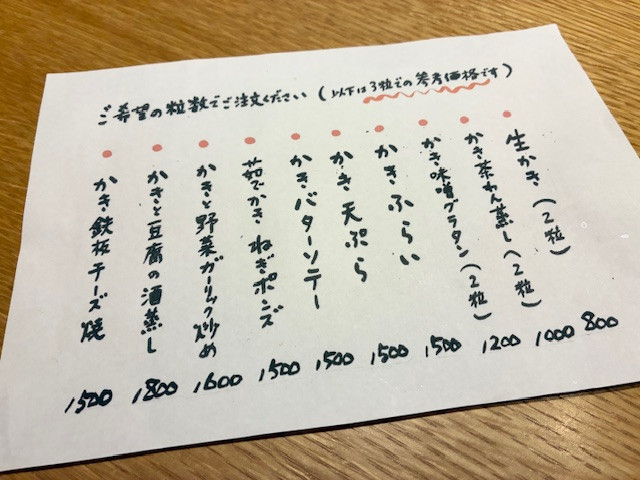 ご希望の粒数でご注文ください（以下は3粒での参考価格です）
生かき（2粒） 800
かき茶わん蒸し（2粒） 1000
かき味噌グラタン（2粒） 1200
かきふらい 1500
かき天ぷら 1500
かきバターソテー 1500
茹でかき ねぎポンズ 1500
かきと野菜ガーリック炒め 1600
かきと豆腐の酒蒸し 1800
かき鉄板チーズ焼 1500